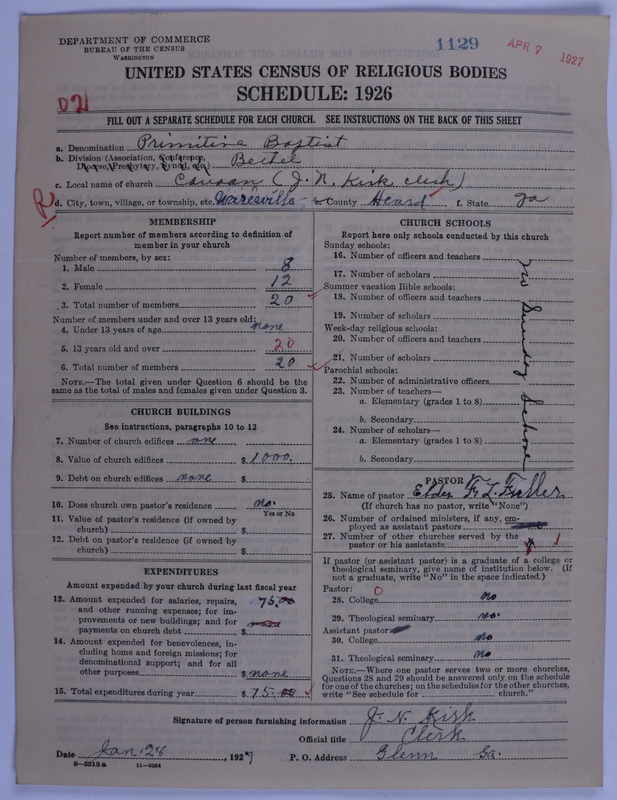 DEPARTMENT OF COMMERCE
BUREAU OF THE CENSUS
WASHINGTON
1129
APR 7 1927
UNITED STATES CENSUS OF RELIGIOUS BODIES
SCHEDULE: 1926
021
FILL OUT A SEPARATE SCHEDULE FOR EACH CHURCH. SEE INSTRUCTIONS ON THE BACK OF THIS SHEET
a. Denomination Primitive Baptist
b. Division (Association, Conference, Diocese, Presbytery, Synod, etc.) Bethel
c. Local name of church Canaan (J. N. Kirk clerk)
R
d. City, town, village, or township, etc. Waresville e. County Heard f. State Ga
MEMBERSHIP
Report number of members according to definition of
member in your church
Number of members, by sex:
1. Male 8
2. Female 12
3. Total number of members 20
Number of members under and over 13 years old:
4. Under 13 years of age none
5. 13 years old and over 20
6. Total number of members 20
NOTE.—The total given under Question 6 should be the
same as the total of males and females given under Question 3.
CHURCH BUILDINGS
See instructions, paragraphs 10 to 12
7. Number of church edifices one
8. Value of church edifices $ 1000.
9. Debt on church edifices none $
10. Does church own pastor's residence no.
Yes or No
11. Value of pastor's residence (if owned by
church) $
12. Debt on pastor's residence (if owned by
church) $
EXPENDITURES
Amount expended by your church during last fiscal year
13. Amount expended for salaries, repairs, 75.00
and other running expenses; for im-
provements or new buildings; and for none
payments on church debt $
14. Amount expended for benevolences, in-
cluding home and foreign missions; for
denominational support; and for all
other purposes $ none
15. Total expenditures during year $ 75.00
CHURCH SCHOOLS
Report here only schools conducted by this church
Sunday schools:
16. Number of officers and teachers
17. Number of scholars
Summer vacation Bible schools:
18. Number of officers and teachers
19. Number of scholars
Week-day religious schools:
20. Number of officers and teachers
21. Number of scholars
Parochial schools:
22. Number of administrative officers
23. Number of teachers—
a. Elementary (grades 1 to 8)
b. Secondary
24. Number of scholars—
a. Elementary (grades 1 to 8)
b. Secondary
no Sunday School
PASTOR
25. Name of pastor Elder F. L. Fuller
(If church has no pastor, write "None")
26. Number of ordained ministers, if any, em-
ployed as assistant pastors
27. Number of other churches served by the
pastor or his assistants 1
If pastor (or assistant pastor) is a graduate of a college or
theological seminary, give name of institution below. (If
not a graduate, write "No" in the space indicated.)
Pastor: 0
28. College no
29. Theological seminary no.
Assistant pastor:
30. College no
31. Theological seminary no
NOTE.—Where one pastor serves two or more churches,
Questions 28 and 29 should be answered only on the schedule
for one of the churches; on the schedules for the other churches,
write "See schedule for church."
Signature of person furnishing information J. N. Kirk
Official title Clerk
Date Jan. 28, 1927 P. O. Address Glenn Ga.
8-5513a 11-9054